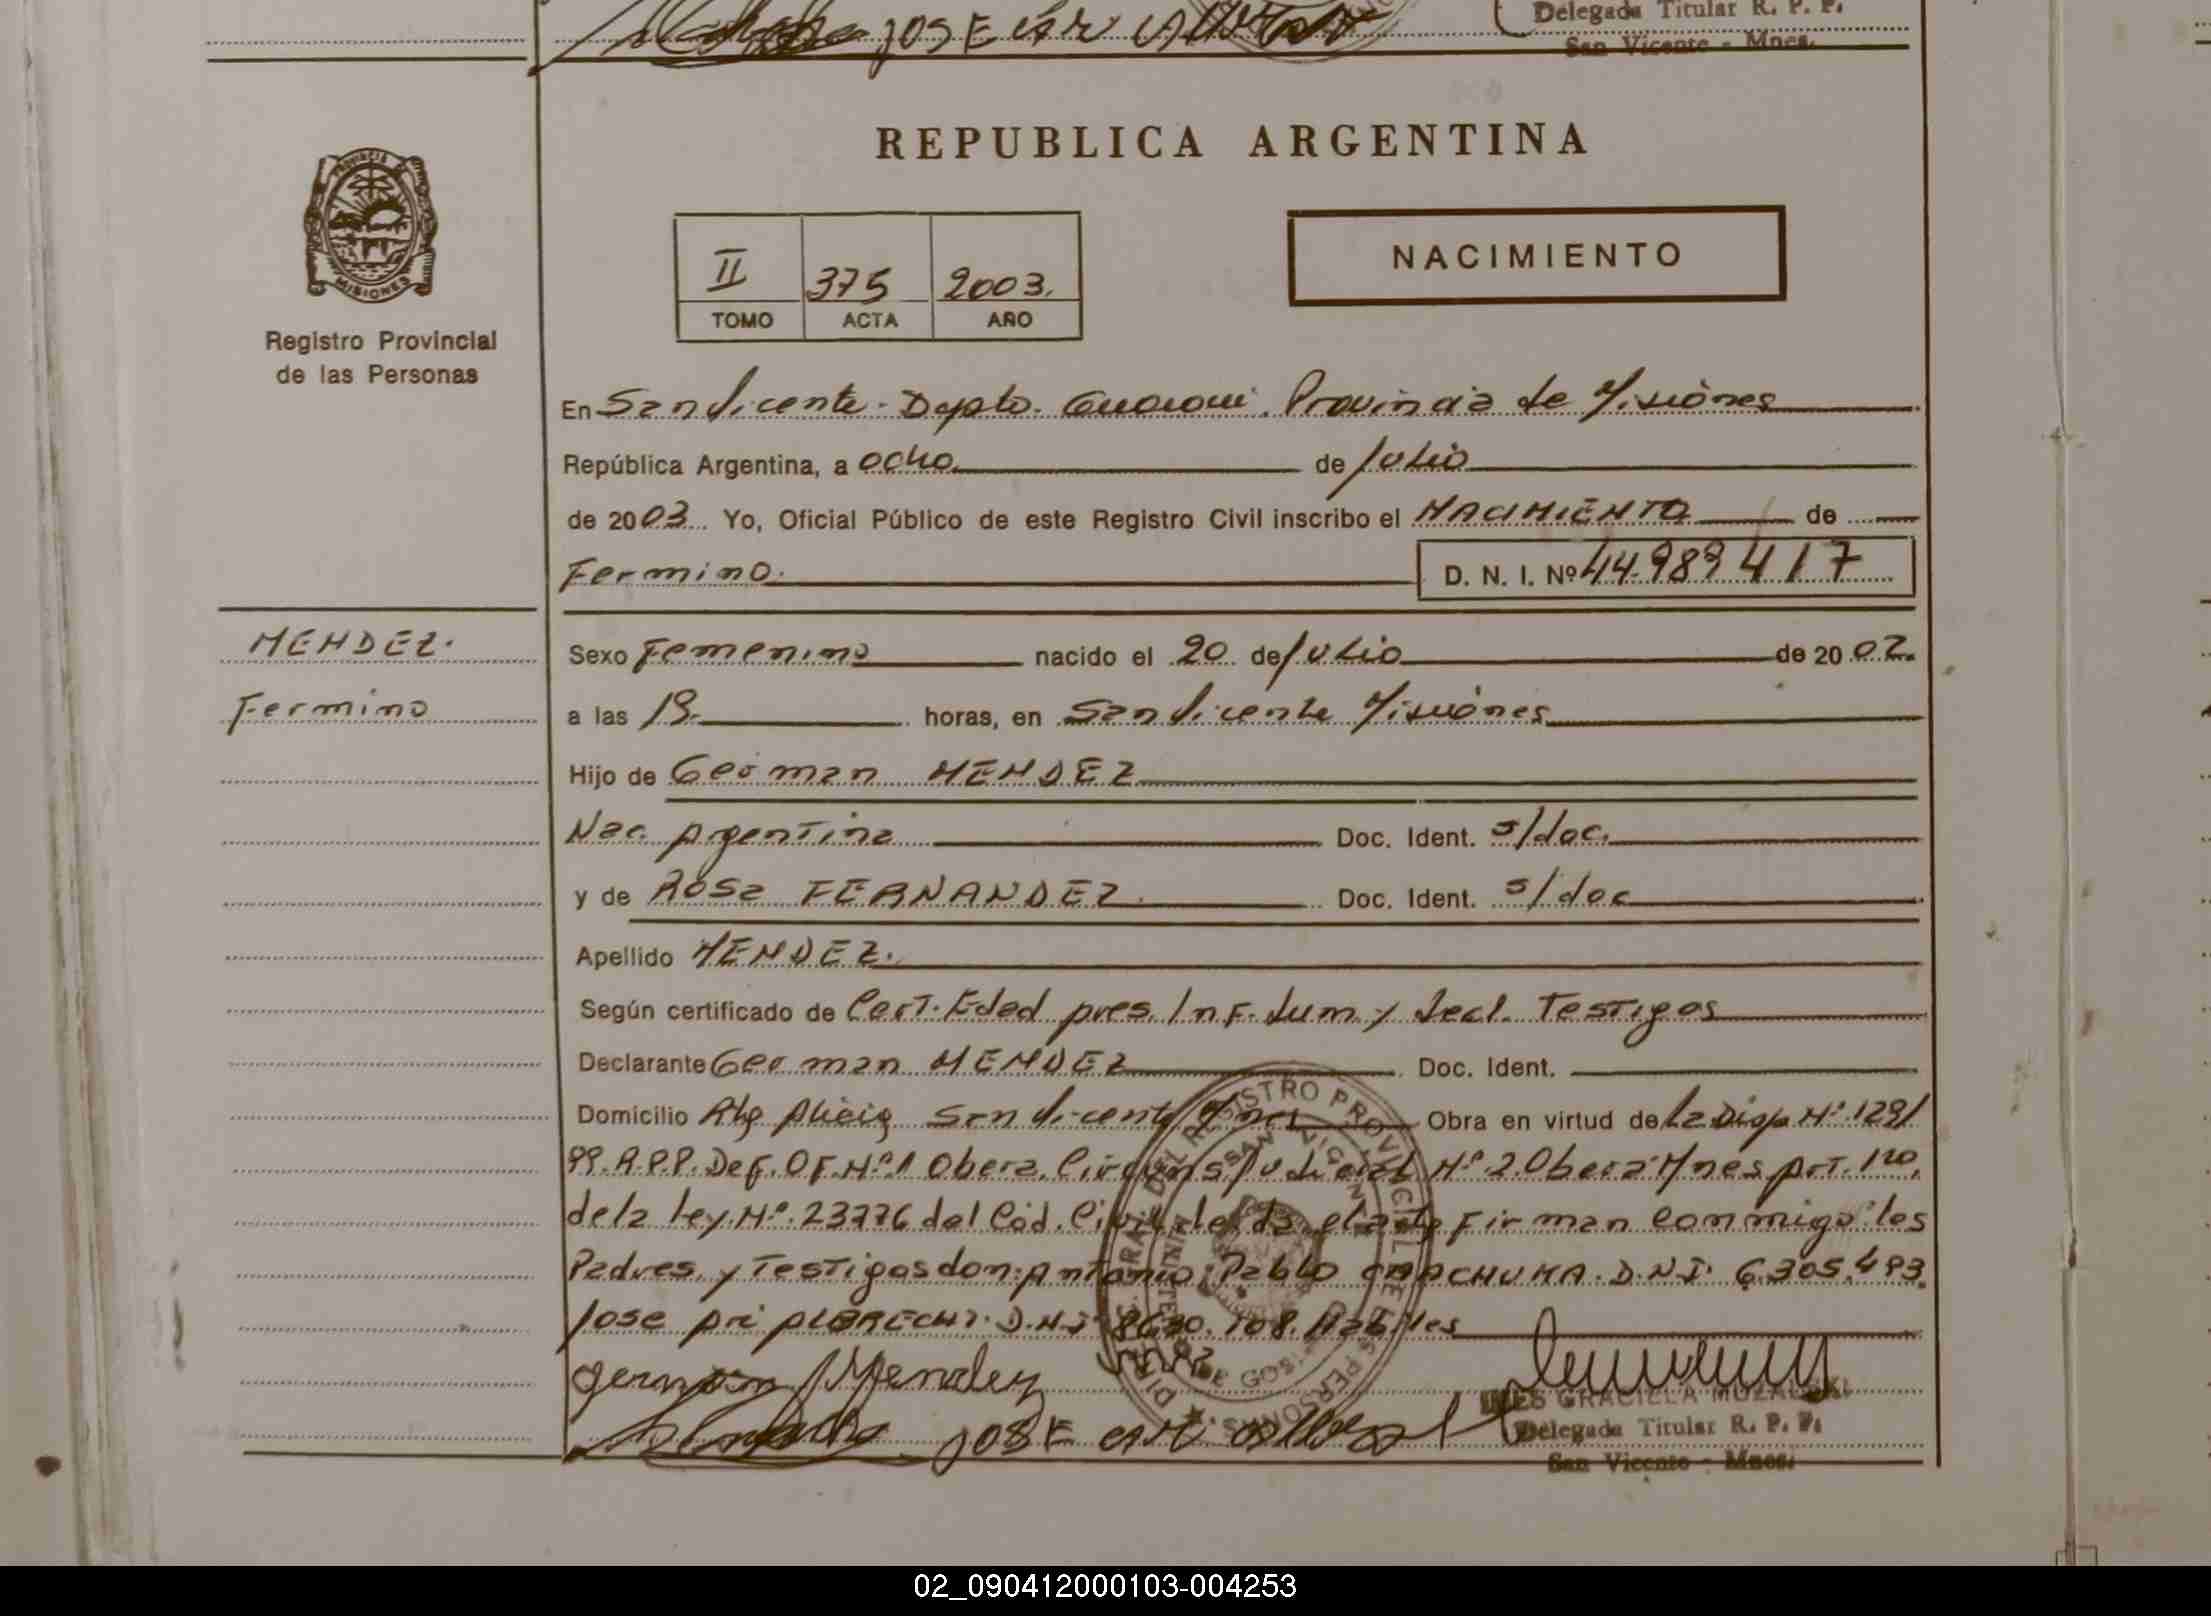 JOSE
Delegada Titular R. P. P.
San Vicente - Mnes.
REPUBLICA ARGENTINA
PROVINCIA
MISIONES
Registro Provincial
de las Personas
II 375 2003.
TOMO ACTA AÑO
NACIMIENTO
En San Vicente. Depto. Guarani. Provincia de Misiones
República Argentina, a ocho de Julio
de 2003 Yo, Oficial Público de este Registro Civil inscribo el NACIMIENTO de
Fermino. D. N. I. Nº 44.989417
MENDEZ.
Fermino
Sexo Femenino nacido el 20 de Julio de 2002.
a las 19. horas, en San Vicente Misiones
Hijo de German MENDEZ
Nac. Argentina Doc. Ident. s/doc.
y de Rosa FERNANDEZ Doc. Ident. s/doc
Apellido MENDEZ.
Según certificado de Cert. Edad pres. Inf. Sum. y decl. Testigos
Declarante German MENDEZ Doc. Ident.
Domicilio Alicia San Vicente Mnes Obra en virtud de la Disp. Nº. 1291
99. R.P.P. Def. Of. Nº. 1 Obera. Circuns Judicial Nº. 2. Obera Mnes Art. 1ro.
de la Ley. Nº. 23776 del Cód. Civil firman conmigo los
Padres y Testigos don: Antonio Pablo D.N.I. 6.305.493.
Jose Ari ALBRECHT. D.N.I. 108. Habiles
German Mendez
JOSE
INES GRACIELA
Delegada Titular R. P. P.
San Vicente - Mnes.
02_090412000103-004253